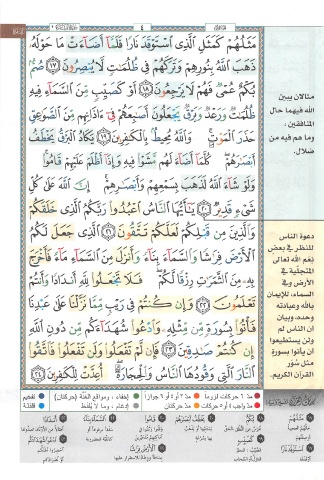 ٤
مَثَلُهُمْ كَمَثَلِ الَّذِي اسْتَوْقَدَ نَارًا فَلَمَّا أَضَاءَتْ مَا حَوْلَهُ
ذَهَبَ اللَّهُ بِنُورِهِمْ وَتَرَكَهُمْ فِي ظُلُمَاتٍ لَا يُبْصِرُونَ ١٧ صُمٌّ
بُكْمٌ عُمْيٌ فَهُمْ لَا يَرْجِعُونَ ١٨ أَوْ كَصَيِّبٍ مِنَ السَّمَاءِ فِيهِ
ظُلُمَاتٌ وَرَعْدٌ وَبَرْقٌ يَجْعَلُونَ أَصَابِعَهُمْ فِي آذَانِهِمْ مِنَ الصَّوَاعِقِ
حَذَرَ الْمَوْتِ وَاللَّهُ مُحِيطٌ بِالْكَافِرِينَ ١٩ يَكَادُ الْبَرْقُ يَخْطَفُ
أَبْصَارَهُمْ كُلَّمَا أَضَاءَ لَهُمْ مَشَوْا فِيهِ وَإِذَا أَظْلَمَ عَلَيْهِمْ قَامُوا
وَلَوْ شَاءَ اللَّهُ لَذَهَبَ بِسَمْعِهِمْ وَأَبْصَارِهِمْ إِنَّ اللَّهَ عَلَى كُلِّ
شَيْءٍ قَدِيرٌ ٢٠ يَا أَيُّهَا النَّاسُ اعْبُدُوا رَبَّكُمُ الَّذِي خَلَقَكُمْ
وَالَّذِينَ مِنْ قَبْلِكُمْ لَعَلَّكُمْ تَتَّقُونَ ٢١ الَّذِي جَعَلَ لَكُمُ
الْأَرْضَ فِرَاشًا وَالسَّمَاءَ بِنَاءً وَأَنْزَلَ مِنَ السَّمَاءِ مَاءً فَأَخْرَجَ
بِهِ مِنَ الثَّمَرَاتِ رِزْقًا لَكُمْ فَلَا تَجْعَلُوا لِلَّهِ أَنْدَادًا وَأَنْتُمْ
تَعْلَمُونَ ٢٢ وَإِنْ كُنْتُمْ فِي رَيْبٍ مِمَّا نَزَّلْنَا عَلَى عَبْدِنَا
فَأْتُوا بِسُورَةٍ مِنْ مِثْلِهِ وَادْعُوا شُهَدَاءَكُمْ مِنْ دُونِ اللَّهِ
إِنْ كُنْتُمْ صَادِقِينَ ٢٣ فَإِنْ لَمْ تَفْعَلُوا وَلَنْ تَفْعَلُوا فَاتَّقُوا
النَّارَ الَّتِي وَقُودُهَا النَّاسُ وَالْحِجَارَةُ أُعِدَّتْ لِلْكَافِرِينَ ٢٤
مثالان يبين
الله فيهما حال
المنافقين ،
وما هم فيه من
ضلال.
دعوة الناس
للنظر في بعض
نعم الله تعالى
المتجلّية في
الأرض وفي
السماء، للإيمان
بالله وعبادته
وحده، وبيان
ان الناس لم
ولن يستطيعوا
ان يأتوا بسورة
مثل سُوَر
القرآن الكريم.
مدّ ٦ حركات لزوماً
مدّ ٢ أو ٤ أو ٦ جوازاً
إخفاء، ومواقع الغُنَّة (حركتان)
تفخيم
مدّ واجب ٤ أو ٥ حركات
مدّ حركتان
إدغام ، وما لا يُلفَظ
قلقلة